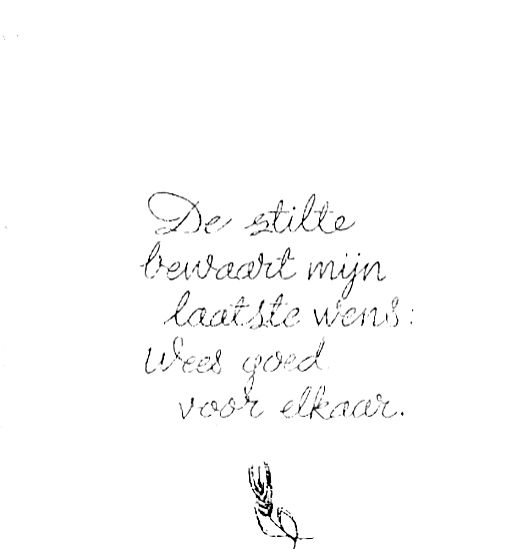 De stilte
bewaart mijn
laatste wens:
Wees goed
voor elkaar.